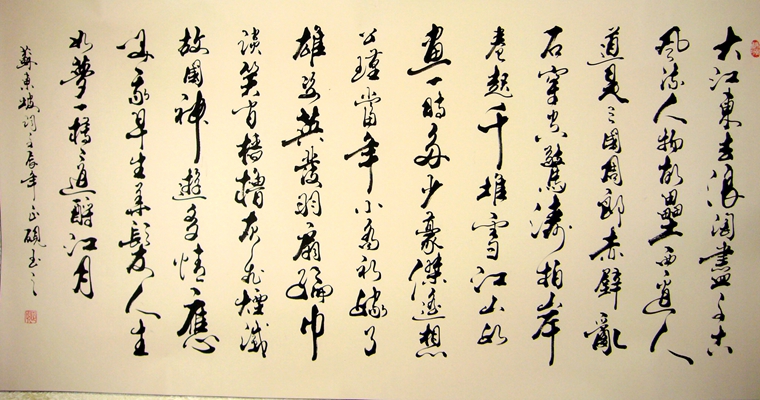 大江東去浪淘盡千古
風流人物故壘西邊人
道是三國周郎赤壁亂
石穿空驚濤拍岸
卷起千堆雪江山如
畫一時多少豪傑遙想
公瑾當年小喬初嫁了
雄姿英發羽扇綸巾
談笑間檣櫓灰飛煙滅
故國神遊多情應
笑我早生華髮人生
如夢一樽還酹江月
蘇東坡詞壬辰年